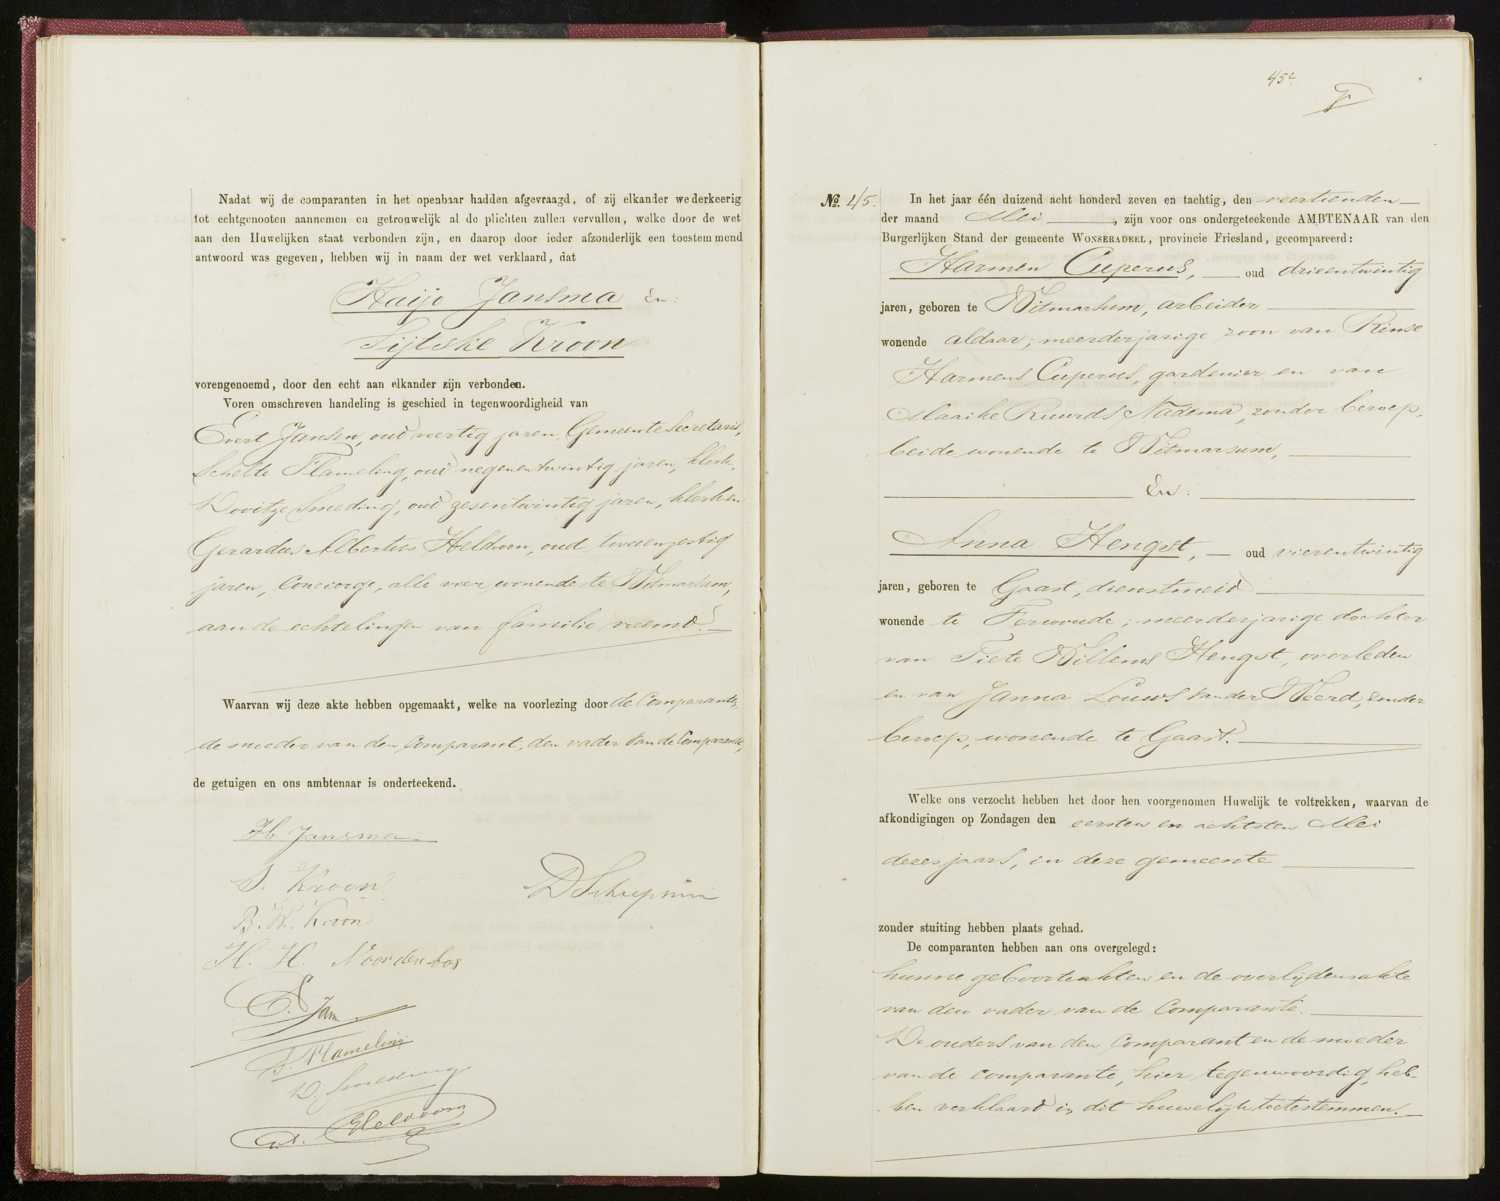 Nadat wij de comparanten in het openbaar hadden afgevraagd, of zij elkander wederkeerig
tot echtgenooten aannemen en getrouwelijk al de plichten zullen vervullen, welke door de wet
aan den Huwelijken staat verbonden zijn, en daarop door ieder afzonderlijk een toestemmend
antwoord was gegeven, hebben wij in naam der wet verklaard, dat
Haije Jansma En:
Sijtske Kroon
vorengenoemd, door den echt aan elkander zijn verbonden.
Voren omschreven handeling is geschied in tegenwoordigheid van
Evert Jansen, oud veertig jaren, Gemeente Secretaris,
Schelte Flameling, oud negenentwintig jaren, klerk,
Dooitze Smeding, oud zesentwintig jaren, klerk en
Gerardus Albertus Heldoorn, oud tweeenzestig
jaren, Concierge, alle vier wonende te Witmarsum,
aan de echtelingen van familie vreemd.
Waarvan wij deze akte hebben opgemaakt, welke na voorlezing door de Comparanten,
de moeder van den Comparant, den vader van de Comparante,
de getuigen en ons ambtenaar is onderteekend.
H Jansma
S. Kroon
D Schepman
B. W. Kroon
H. H. Noordenbos
E. Jan
S. Flameling
D. Smeding
GA. Heldoorn
45
No. 45.
In het jaar één duizend acht honderd zeven en tachtig, den veertienden
der maand Mei, zijn voor ons ondergeteekende AMBTENAAR van den
Burgerlijken Stand der gemeente WONSERADEEL, provincie Friesland, gecompareerd:
Harmen Cuperus, oud drieentwintig
jaren, geboren te Witmarsum, arbeider
wonende aldaar; meerderjarige zoon van Rinse
Harmens Cuperus, gardenier en van
Maaike Ruurds Nadema, zonder beroep,
beide wonende te Witmarsum,
En:
Anna Hengst, oud vierentwintig
jaren, geboren te Gaast, dienstmeid
wonende te Ferwoude; meerderjarige dochter
van Tiete Willems Hengst, overleden
en van Janna Louws van der Weerd, zonder
beroep, wonende te Gaast.
Welke ons verzocht hebben het door hen voorgenomen Huwelijk te voltrekken, waarvan de
afkondigingen op Zondagen den eersten en achtsten Mei
dezes jaars, in deze gemeente
zonder stuiting hebben plaats gehad.
De comparanten hebben aan ons overgelegd:
hunne geboorteakten en de overlijdensakte
van den vader van de Comparante.
De ouders van den Comparant en de moeder
van de comparante, hier tegenwoordig, heb-
ben verklaard in dit huwelijk toetestemmen.